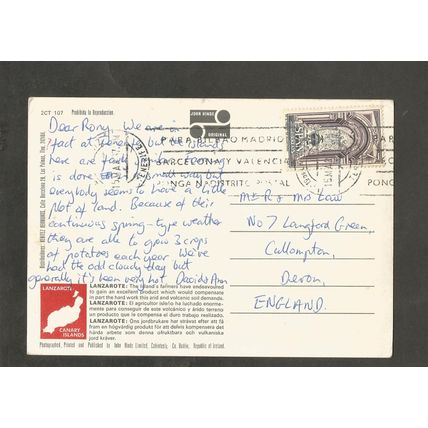 2CT 107 Prohibida la Reproduccion.
JOHN HINDE
ORIGINAL
Dear Rony, We are in
fact at
here are
is done
everybody seems to have a little
plot of land. Because of their
continuous spring-type weather
they are able to grow 3 crops
of potatoes each year. We've
had the odd cloudy day but
generally it's been very hot. David & Ann
MADRID
BARCELONA Y VALENCIA
PONGA DISTRITO POSTAL
PONG
Mr R & Mrs Law
No 7 Langford Green,
Cullompton,
Devon,
ENGLAND.
LANZAROTE
CANARY
ISLANDS
LANZAROTE: The island's farmers have endeavoured
to gain an excellent product which would compensate
in part the hard work this arid and volcanic soil demands.
LANZAROTE: El agricultor isleño ha luchado enorme-
mente para conseguir de este volcánico y árido terreno
un producto que le compensa el duro trabajo realizado.
LANZAROTE: Öns jordbrukare har strävat efter att få
fram en högvärdig produkt för att delvis kompensera det
hårda arbete som denna ofruktbara och vulkaniska
jord kräver.
Photographed, Printed and Published by John Hinde Limited, Cabinteely, Co. Dublin, Republic of Ireland.